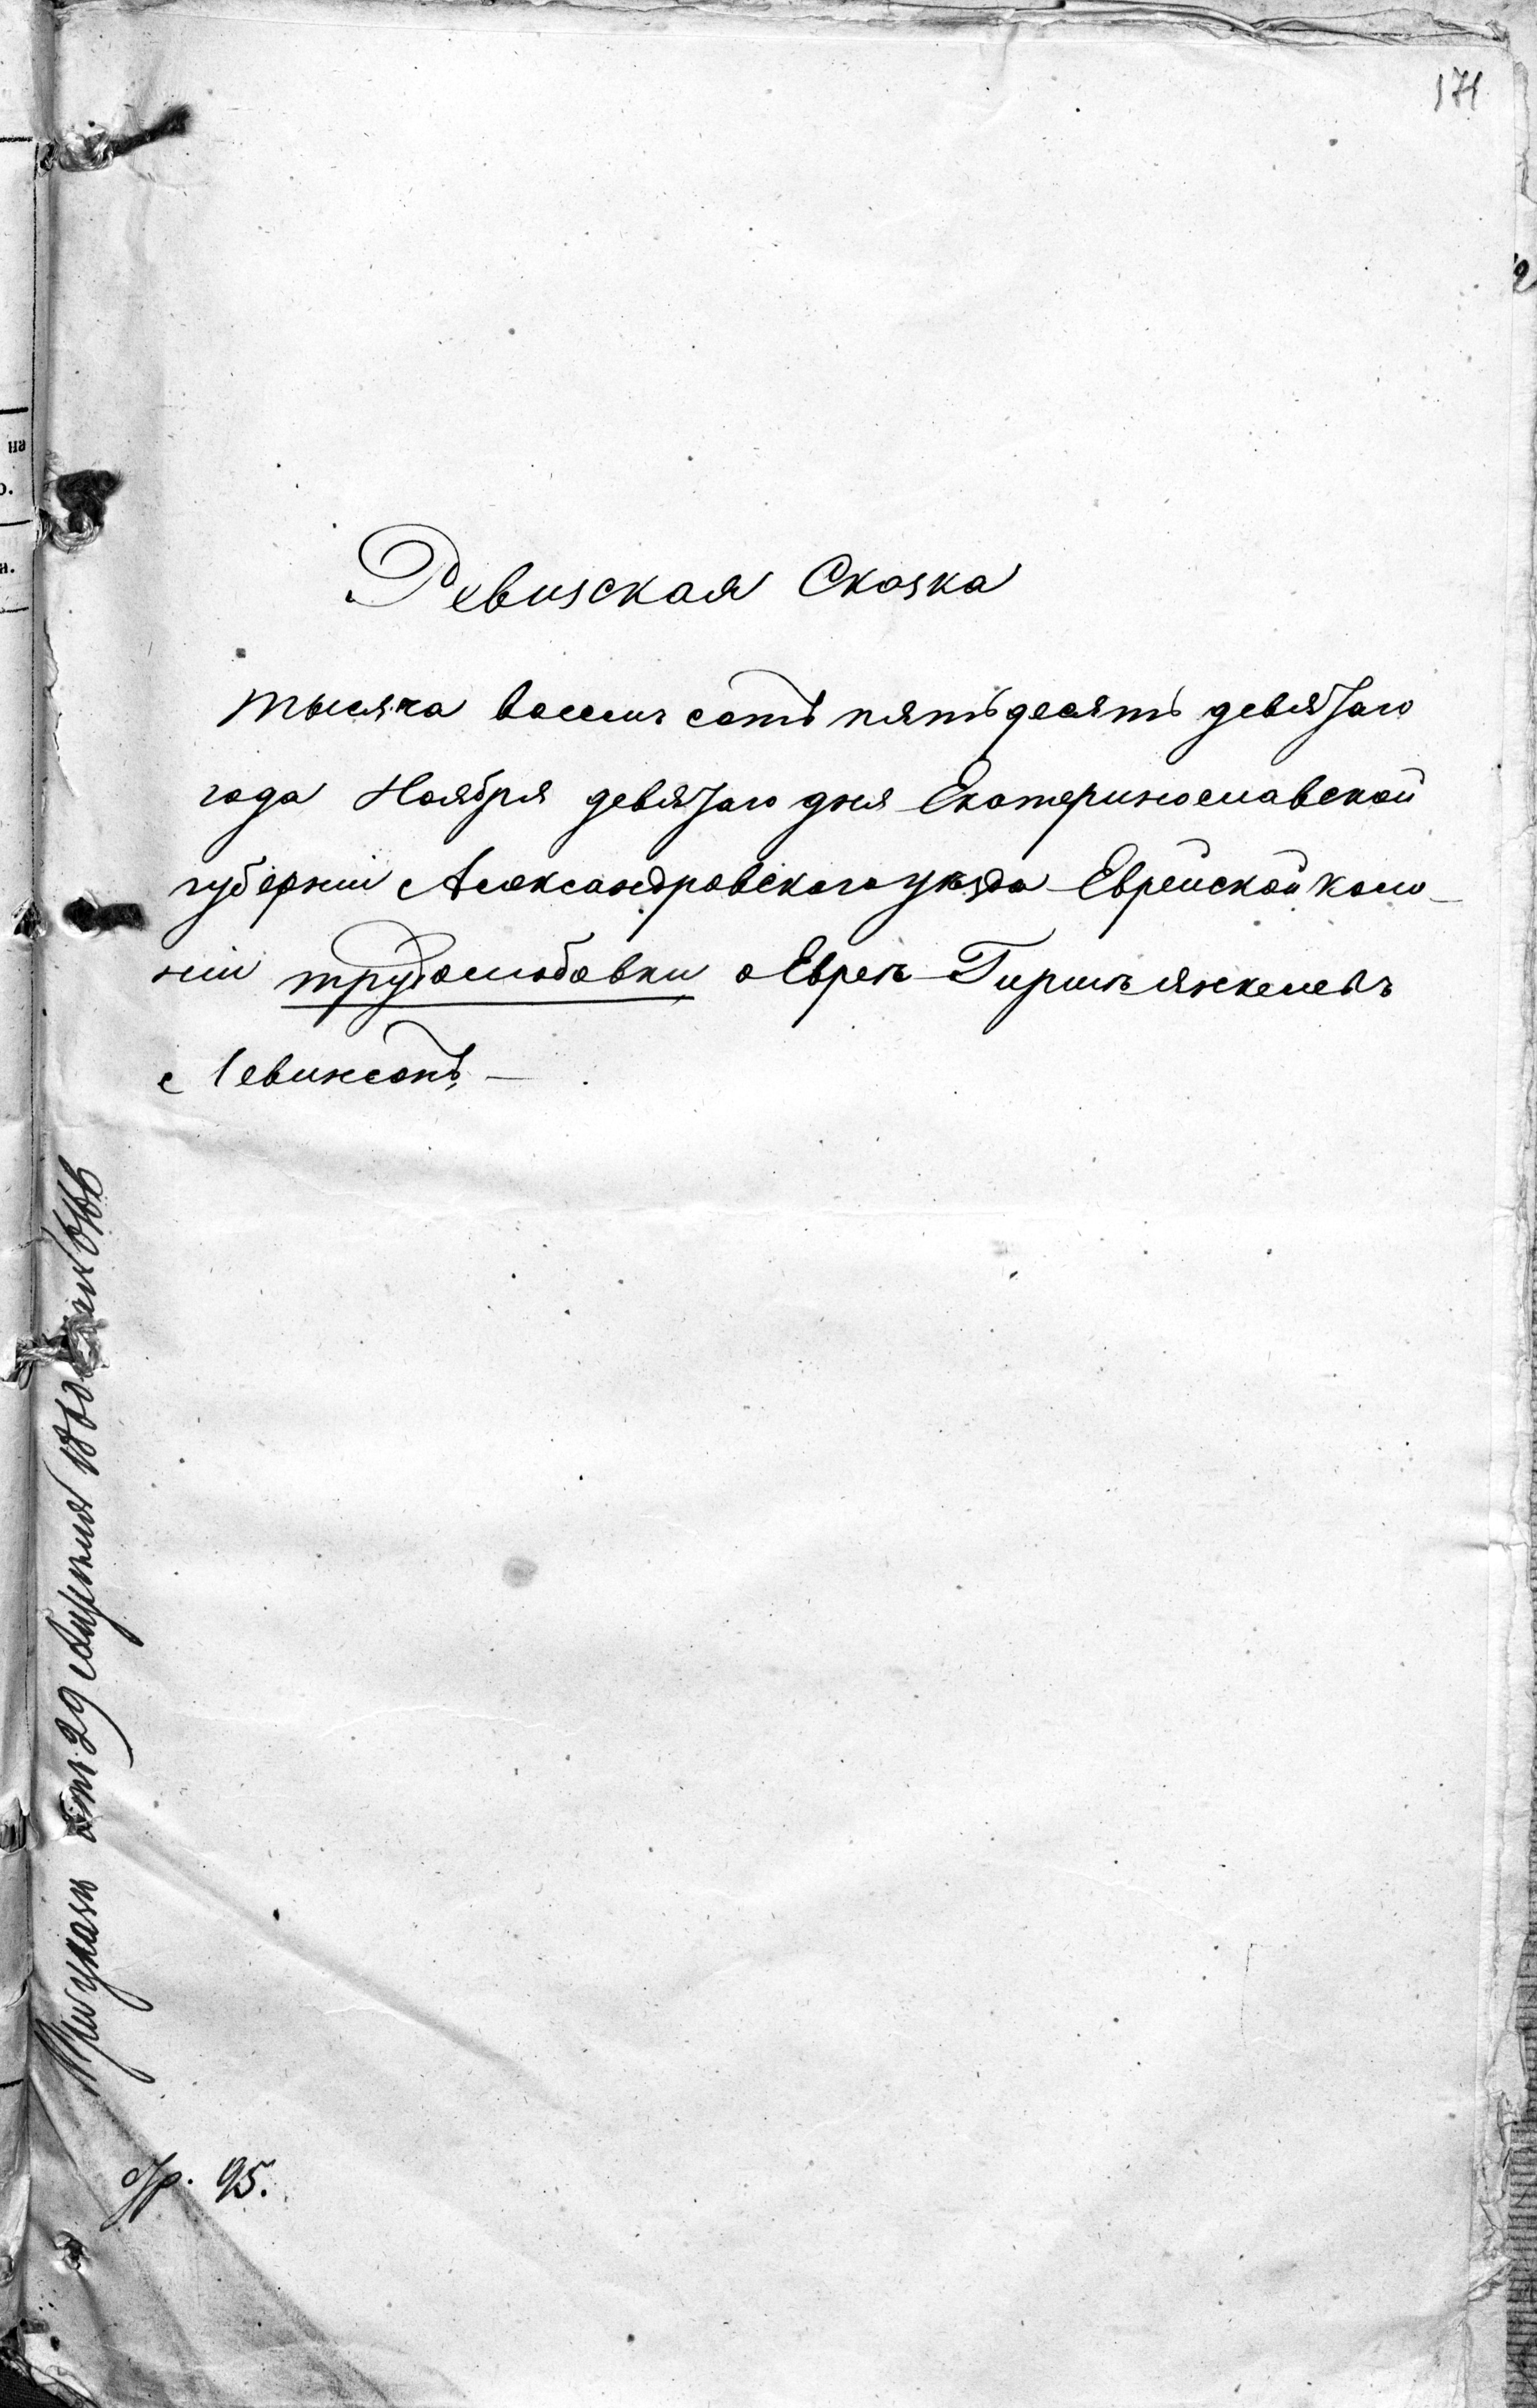 171
Ревизская Сказка
тысяча восемь сотъ пятьдесятъ девятаго
года Ноября девятаго дня Екатеринославской
губерніи Александровскаго уѣзда Еврейской коло-
ніи трудолюбовки о Евреѣ Гиршѣ Янкелевѣ
Левинсонъ. —
При указѣ отъ 29 Апрѣля 1860
Обр. 95.
на
о.
н.